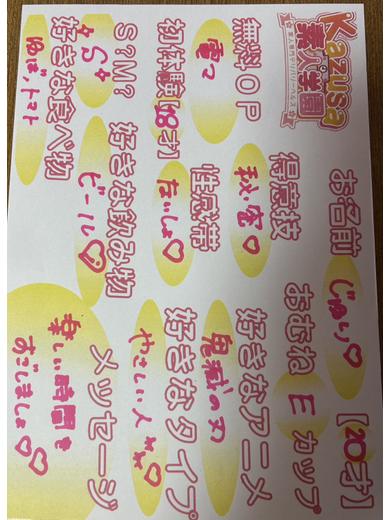 Kazusa
素人学園
お名前
じゅり♡
【20才】
おむね E カップ
得意技
秘密♡
好きなアニメ
鬼滅の刃
無料OP
電マ
性感帯
ないしょ♡
好きなタイプ
やさしい人
初体験【18才】
好きな飲み物
ビール♡
メッセージ
楽しい時間を
すごしましょ♡♡
S?M?
S
好きな食べ物
ゆば、トマト